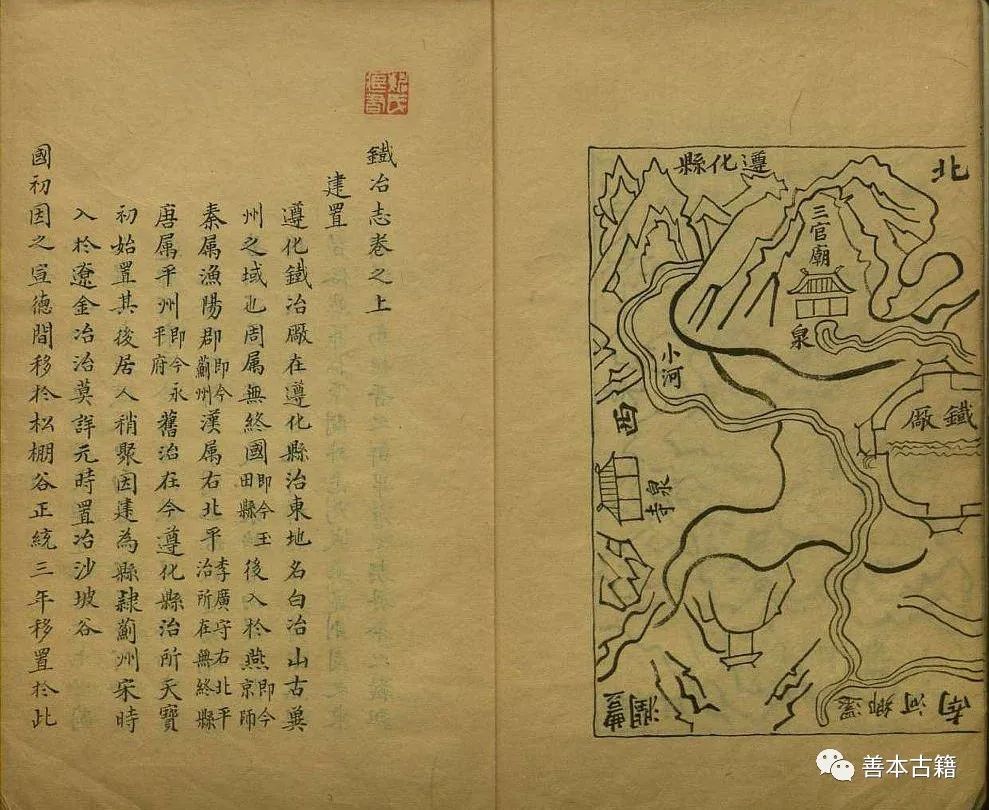 北
遵化縣
三官廟
泉
小河
鐵廠
西
泉寺
南
還鄉河
豐潤
鐵冶志卷之上
建置
遵化鐵冶廠在遵化縣治東地名白冶山古冀
州之域也周属無終國即今玉田縣後入於燕即今京師
秦属漁陽郡即今薊州漢属右北平李廣守右北平治所在無終縣
唐属平州即今永平府舊治在今遵化縣治所天寶
初始置其後居人稍聚因建為縣隸薊州宋時
入於遼金冶治莫詳元時置冶沙坡谷
國初因之宣德間移於松棚谷正統三年移置於此
善本古籍